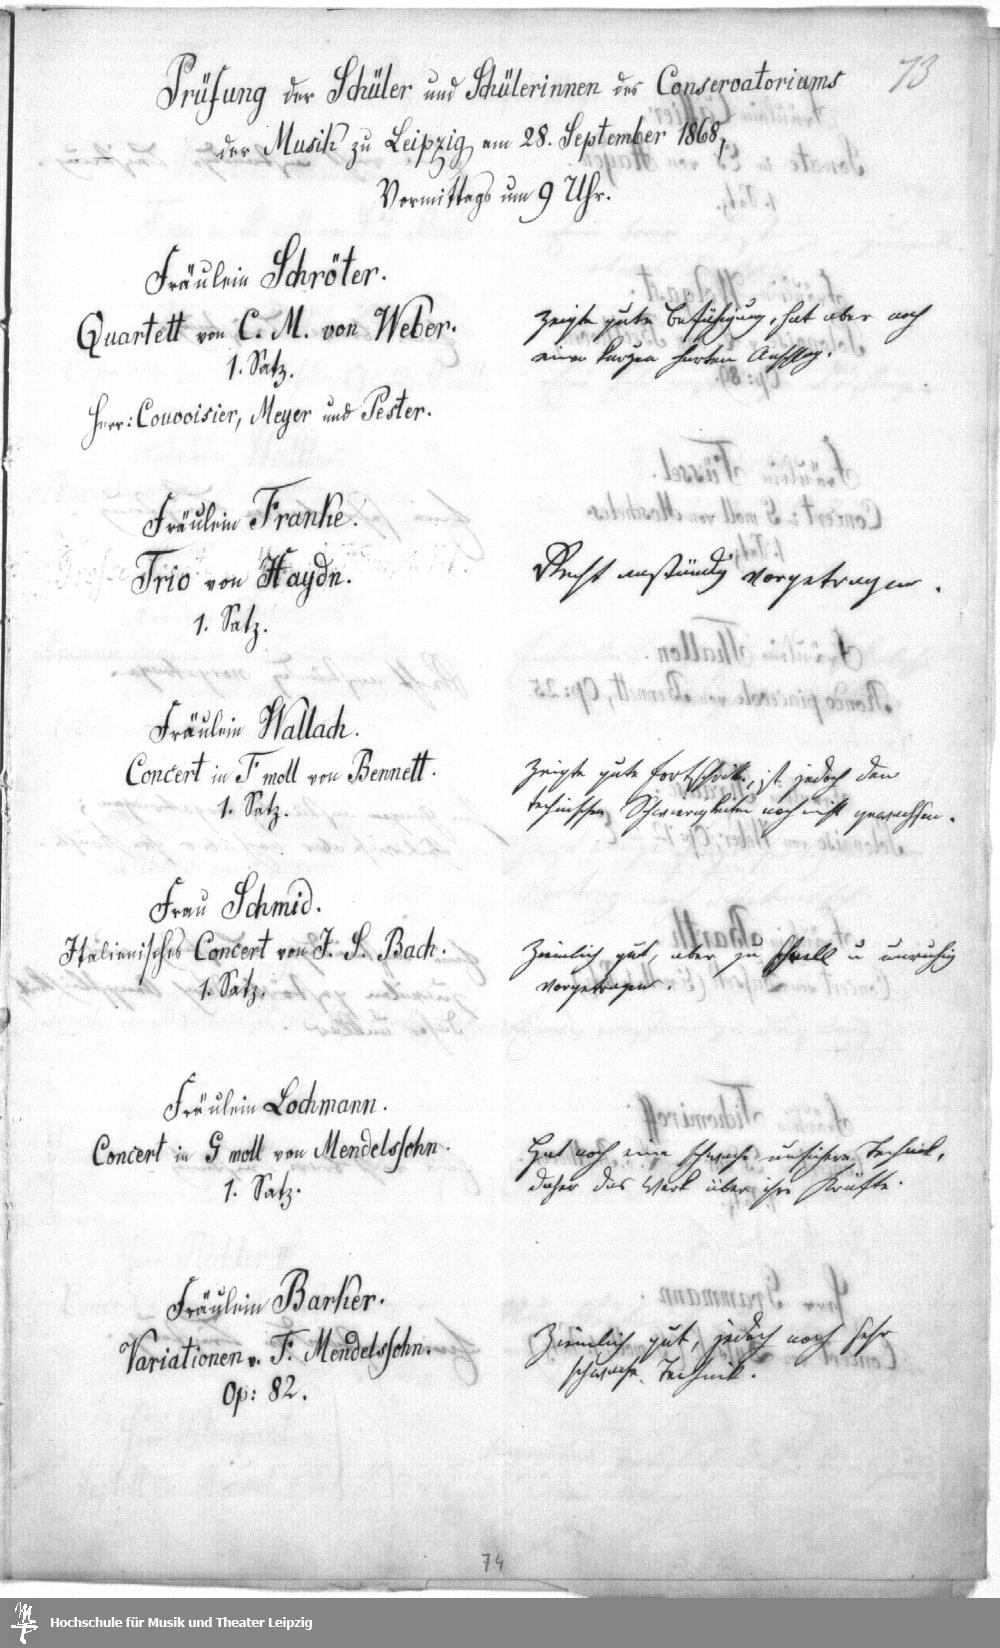 73
Prüfung der Schüler und Schülerinnen des Conservatoriums
der Musik zu Leipzig am 28. September 1868,
Vormittags um 9 Uhr.
Fräulein Schröter.
Quartett von C. M. von Weber.
1. Satz.
Herr: Couvoisier, Meyer und Pester.
Zeigte gute Befähigung, hat aber noch
einen kurzen harten Anschlag.
Fräulein Franke.
Trio von Haydn.
1. Satz.
Recht anständig vorgetragen.
Fräulein Wallach.
Concert in F moll von Bennett.
1. Satz.
Zeigte gute Fortschritte, ist jedoch den
technischen Schwierigkeiten noch nicht gewachsen.
Frau Schmid.
Italienisches Concert von J. S. Bach.
1. Satz.
Ziemlich gut, aber zu schnell u unruhig
vorgetragen.
Fräulein Lochmann.
Concert in G moll von Mendelssohn.
1. Satz.
Hat noch eine schwache unsichere Technik,
daher das Werk über ihre Kräfte.
Fräulein Barker.
Variationen v. F. Mendelssohn.
Op: 82.
Ziemlich gut, jedoch noch sehr
schwache Technik.
74
Hochschule für Musik und Theater Leipzig